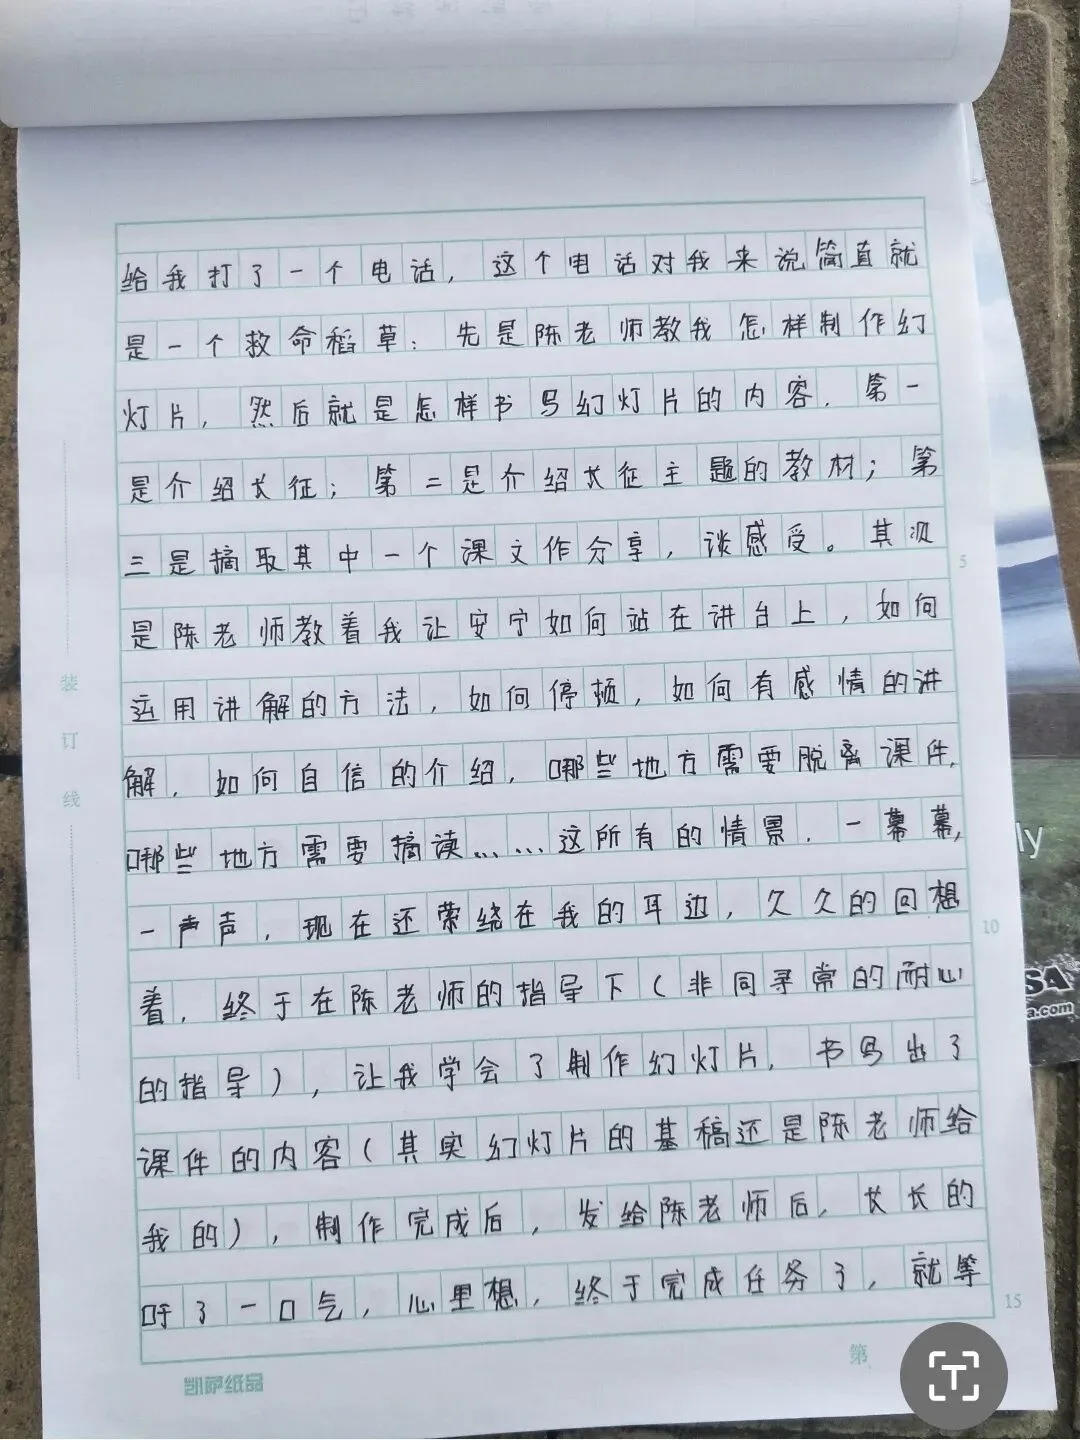 给我打了一个电话，这个电话对我来说简直就
是一个救命稻草：先是陈老师教我怎样制作幻
灯片，然后就是怎样书写幻灯片的内容．第一
是介绍长征；第二是介绍长征主题的教材；第
三是摘取其中一个课文作分享，谈感受。其次
是陈老师教着我让安宁如何站在讲台上，如何
运用讲解的方法，如何停顿，如何有感情的讲
解，如何自信的介绍，哪些地方需要脱离课件，
哪些地方需要摘读……这所有的情景．一幕幕，
一声声，现在还萦绕在我的耳边，久久的回想
着，终于在陈老师的指导下（非同寻常的耐心
的指导），让我学会了制作幻灯片，书写出了
课件的内容（其实幻灯片的基稿还是陈老师给
我的），制作完成后，发给陈老师后，长长的
吁了一口气，心里想，终于完成任务了，就等
5
10
15
装
订
线
凯萨纸品
第
ly
SA
a.com